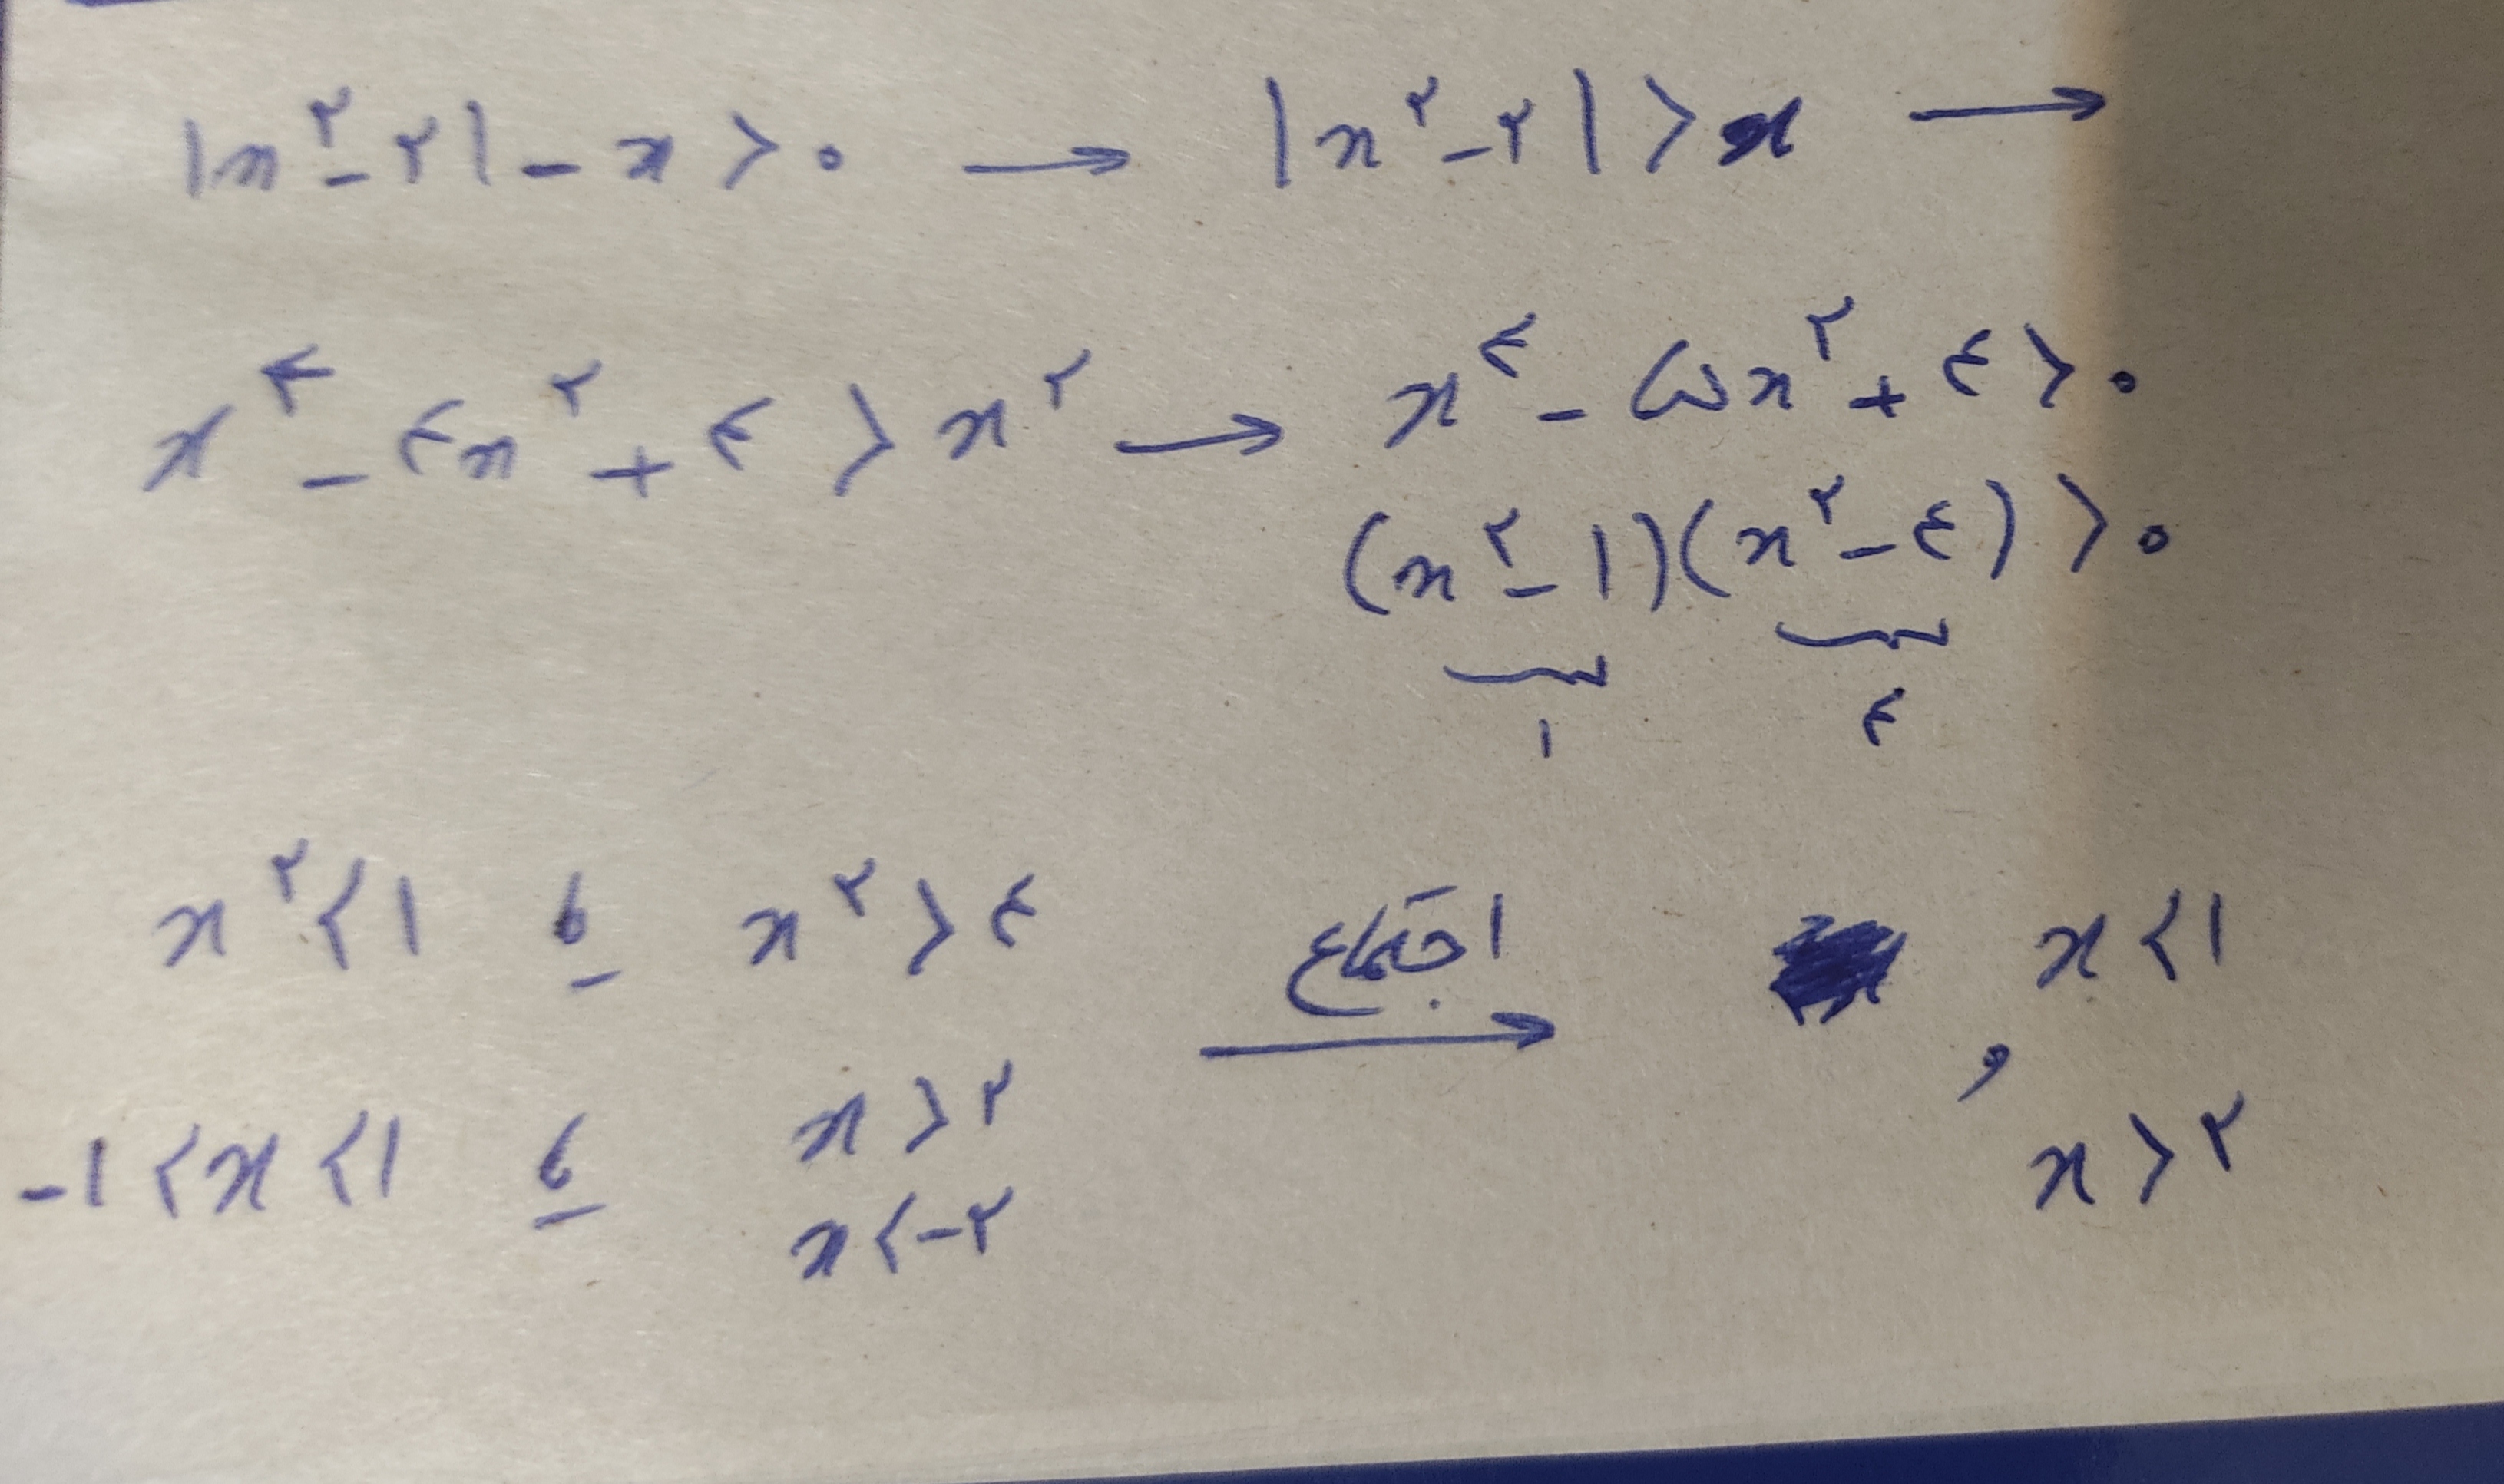 |x² - ۲| - x > ۰ → |x² - ۲| > x →
x⁴ - ۴x² + ۴ > x² → x⁴ - ۵x² + ۴ > ۰
(x² - ۱)(x² - ۴) > ۰
۱ ۴
x² < ۱ یا x² > ۴ اجتماع → x < ۱
,
-۱ < x < ۱ یا x > ۲ x > ۲
x < -۲